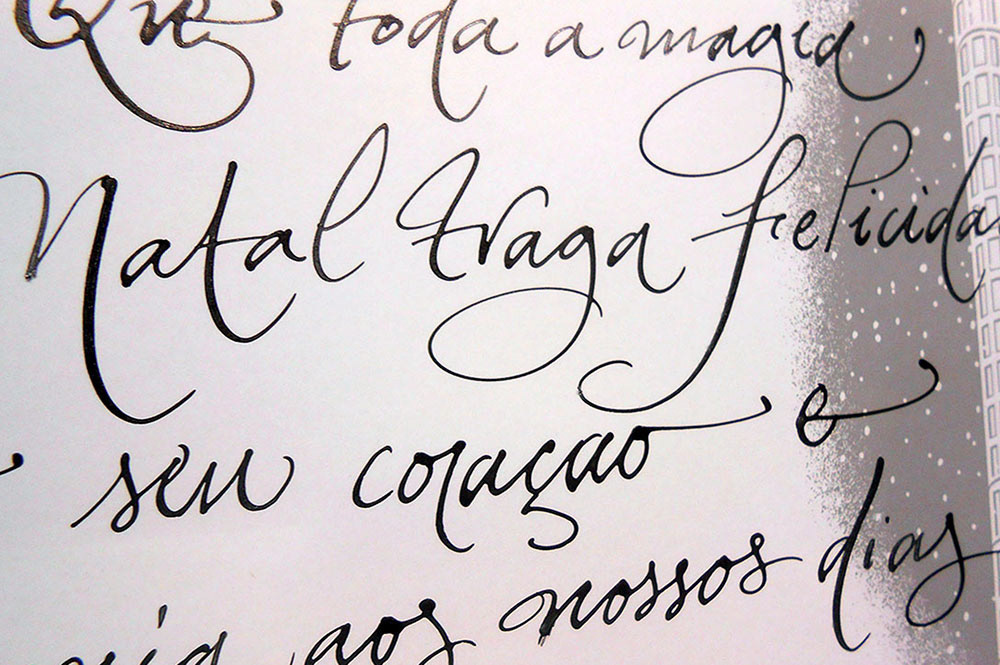 Que toda a magia
Natal traga felicida
seu coraçao e
aos nossos dias